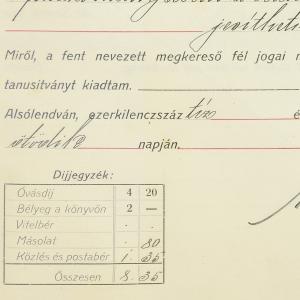 jesíthető
Miről, a fent nevezett megkereső fél jogai
tanusítványt kiadtam.
Alsólendván, ezerkilenczszáz tíz
ötödik napján.
Díjjegyzék:
Óvásdíj 4 20
Bélyeg a könyvön 2 —
Vitelbér . .
Másolat . 80
Közlés és postabér 1 35
Összesen 8 35